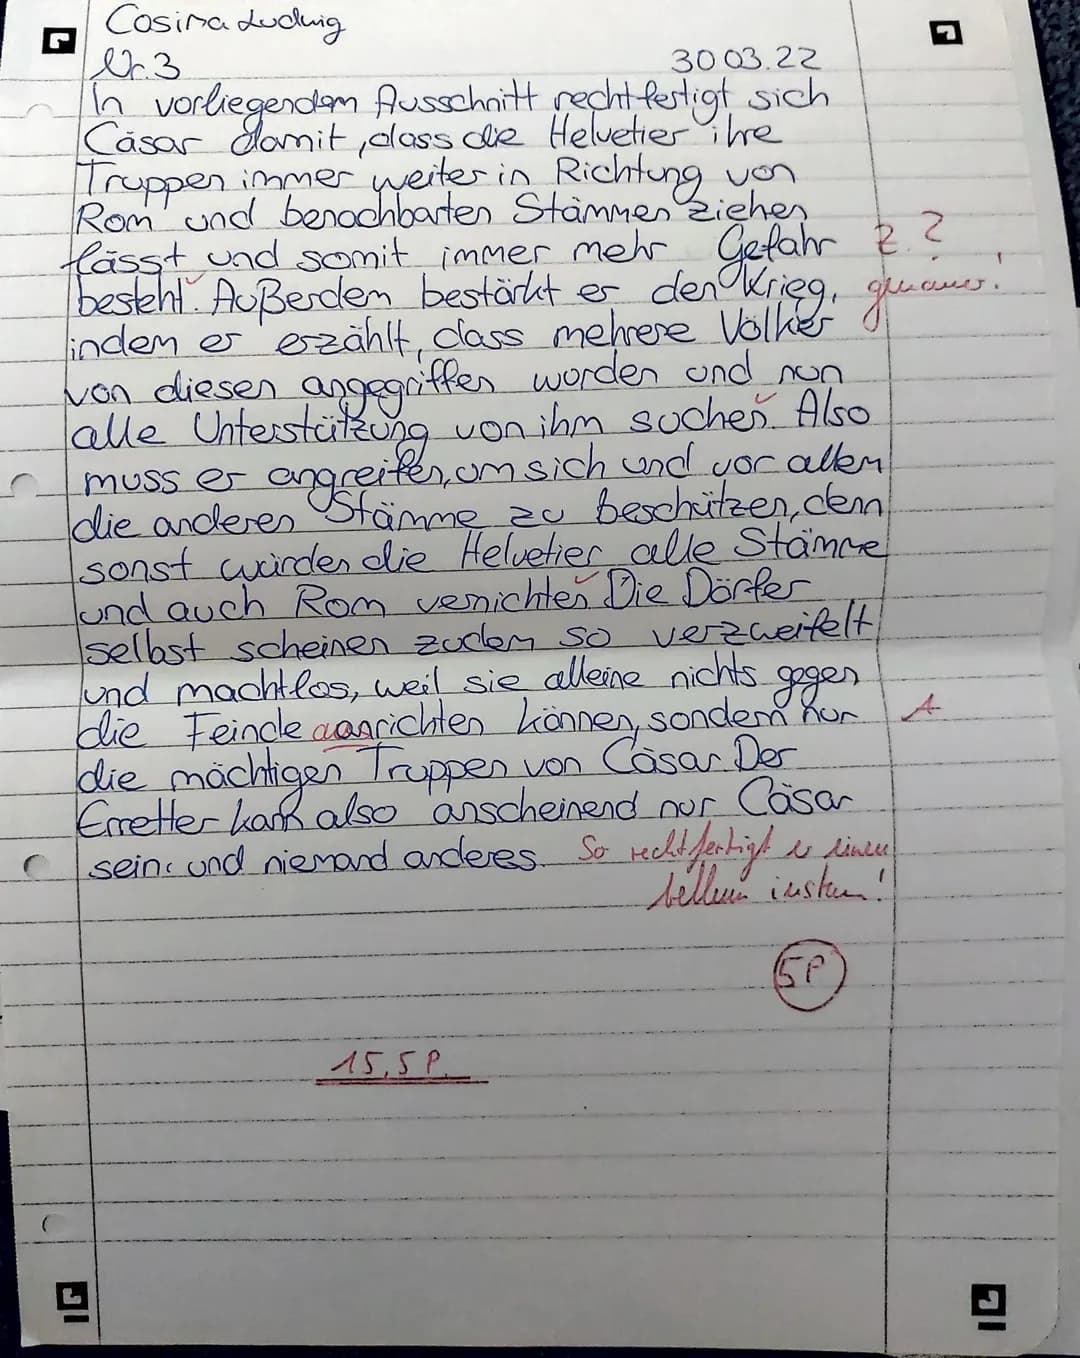 Cosima Ludwig
Nr. 3 30 03.22
In vorliegendem Ausschnitt rechtfertigt sich
Cäsar damit, dass die Helvetier ihre
Truppen immer weiter in Richtung von
Rom und benachbarten Stämmen ziehen
lässt und somit immer mehr Gefahr Z.?
besteht. Außerdem bestärkt er den Krieg, genauer!
indem er erzählt, dass mehrere Völker
von diesen angegriffen worden und nun
alle Unterstützung von ihm suchen. Also
muss er angreifen, um sich und vor allem
die anderen Stämme zu beschützen, denn
sonst würden die Helvetier alle Stämme
und auch Rom vernichten Die Dörfer
selbst scheinen zudem so verzweifelt
und machtlos, weil sie alleine nichts gegen
die Feinde anrichten können, sondern nur A
die mächtigen Truppen von Cäsar. Der
Erretter kann also anscheinend nur Cäsar
sein und niemand anderes. So rechtfertigt er einen
bellum iustum!
5P
15,5 P.